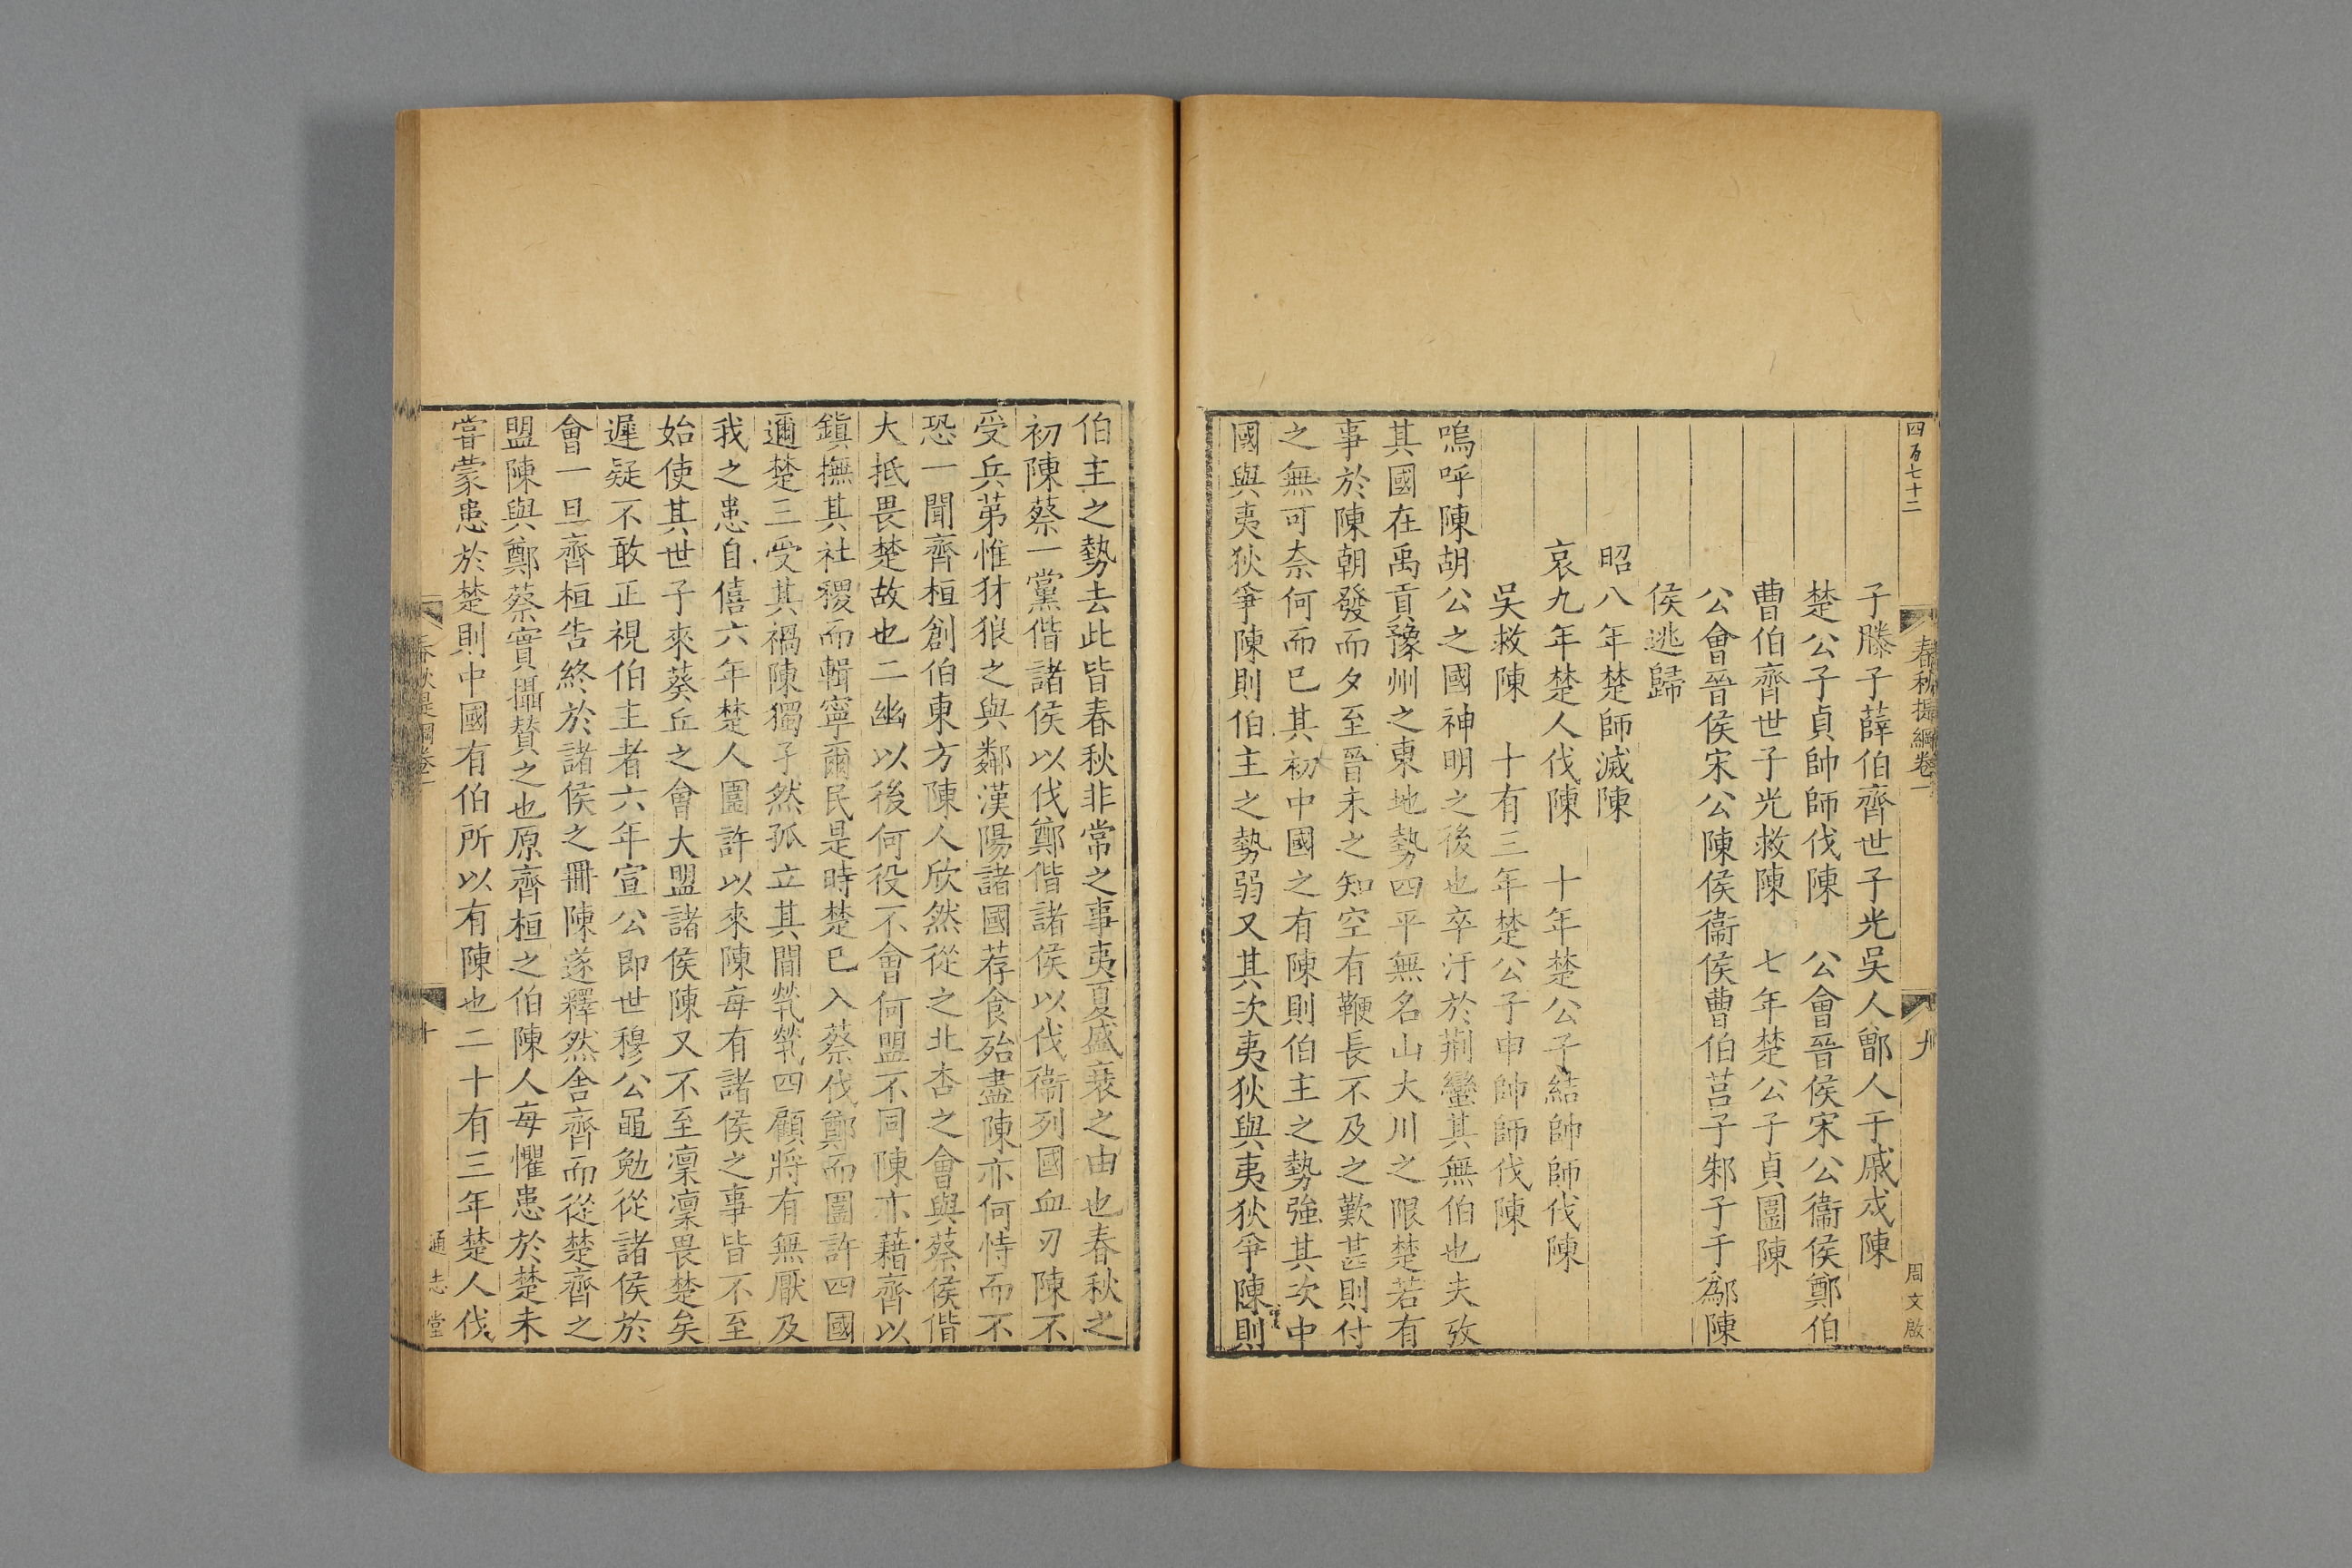 四百七十二
春秋提綱卷一
九
周文啟
子滕子薛伯齊世子光吳人鄫人于戚戍陳
楚公子貞帥師伐陳　公會晉侯宋公衞侯鄭伯
曹伯齊世子光救陳　七年楚公子貞圍陳
公會晉侯宋公陳侯衞侯曹伯莒子邾子于鄬陳
侯逃歸
昭八年楚師滅陳
哀九年楚人伐陳　十年楚公子結帥師伐陳
吳救陳　十有三年楚公子申帥師伐陳
嗚呼陳胡公之國神明之後也卒汙於荆蠻其無伯也夫攷
其國在禹貢豫州之東地勢四平無名山大川之限楚若有
事於陳朝發而夕至晉未之知空有鞭長不及之歎甚則付
之無可奈何而已其初中國之有陳則伯主之勢強其次中
國與夷狄爭陳則伯主之勢弱又其次夷狄與夷狄爭陳則
伯主之勢去此皆春秋非常之事夷夏盛衰之由也春秋之
初陳蔡一黨偕諸侯以伐鄭偕諸侯以伐衞列國血刃陳不
受兵苐惟犲狼之與鄰漢陽諸國荐食殆盡陳亦何恃而不
恐一聞齊桓創伯東方陳人欣然從之北杏之會與蔡侯偕
大抵畏楚故也二幽以後何役不會何盟不同陳亦藉齊以
鎮撫其社稷而輯寧爾民是時楚已入蔡伐鄭而圍許四國
邇楚三受其禍陳獨孑然孤立其間煢煢四顧將有無厭及
我之患自僖六年楚人圍許以來陳每有諸侯之事皆不至
始使其世子來葵丘之會大盟諸侯陳又不至凜凜畏楚矣
遲疑不敢正視伯主者六年宣公即世穆公黽勉從諸侯於
會一旦齊桓告終於諸侯之冊陳遂釋然舍齊而從楚齊之
盟陳與鄭蔡實攝賛之也原齊桓之伯陳人每懼患於楚未
甞蒙患於楚則中國有伯所以有陳也二十有三年楚人伐
春秋提綱卷一
十
通志堂